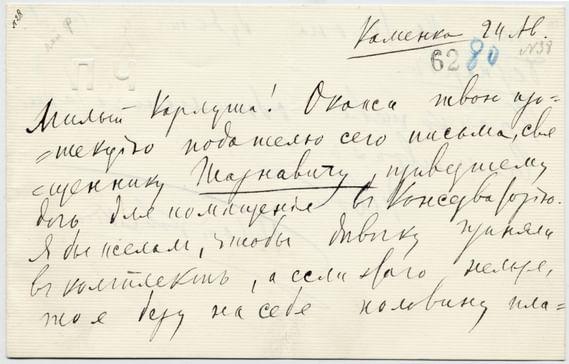 Каменка 24 Ав.
6280
№38
Милый Карлуша! Окажи твою про-
=текцію подателю сего письма, свя
=щеннику Тарнавичу, приведшему
дочь для помещенія въ Консерваторію.
Я бы желал, чтобы девочку приняли
въ комплектъ, а если этого нельзя,
то я беру на себя половину пла-